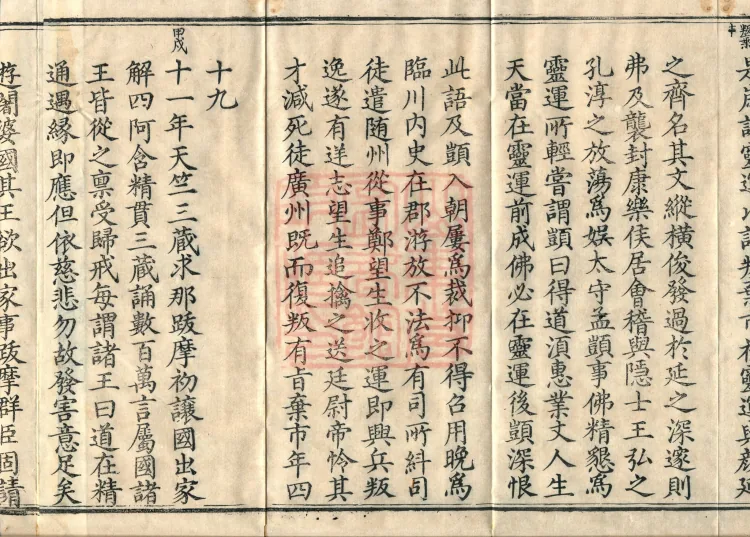 之齊名其文縱橫俊發過於延之深邃則
弗及襲封康樂侯居會稽與隱士王弘之
孔淳之放蕩爲娱太守孟顗事佛精懇爲
靈運所輕嘗謂顗曰得道須惠業文人生
天當在靈運前成佛必在靈運後顗深恨
此語及顗入朝屢爲裁抑不得召用晚爲
臨川内史在郡游放不法爲有司所糾司
徒遣随州從事鄭望生收之運即興兵叛
逸遂有逆志望生追擒之送廷尉帝怜其
才減死徒廣州既而復叛有旨棄市年四
十九
甲戌
十一年天竺三藏求那跋摩初讓國出家
解四阿含精貫三藏誦數百萬言屬國諸
王皆從之稟受歸戒每謂諸王曰道在精
通遇緣即應但依慈悲勿故發害意足矣
遊闍婆國其王欲出家事跋摩群臣固請